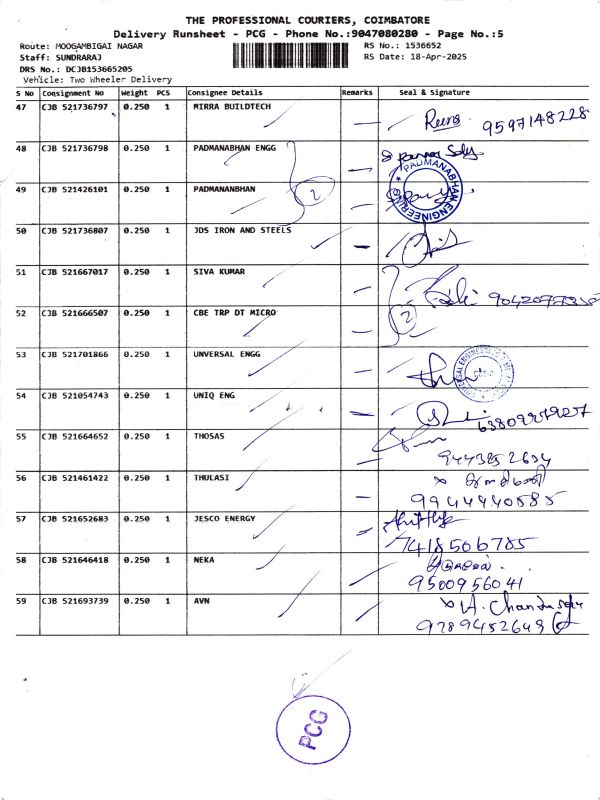 THE PROFESSIONAL COURIERS, COIMBATORE
Delivery Runsheet - PCG - Phone No.:9047080280 - Page No.:5
Route: MOOGAMBIGAI NAGAR
RS No.: 1536652
Staff: SUNDRARAJ
RS Date: 18-Apr-2025
DRS No.: DCJB153665205
Vehicle: Two Wheeler Delivery
S No Consignment No Weight PCS Consignee Details Remarks Seal & Signature
47 CJB 521736797 0.250 1 MIRRA BUILDTECH 9597148228
48 CJB 521736798 0.250 1 PADMANABHAN ENGG
49 CJB 521426101 0.250 1 PADMANANBHAN 2 PADMANABHAN ENGINEERING
50 CJB 521736807 0.250 1 JDS IRON AND STEELS
51 CJB 521667017 0.250 1 SIVA KUMAR
52 CJB 521666507 0.250 1 CBE TRP DT MICRO 2
53 CJB 521701866 0.250 1 UNVERSAL ENGG
54 CJB 521054743 0.250 1 UNIQ ENG
55 CJB 521664652 0.250 1 THOSAS
56 CJB 521461422 0.250 1 THULASI 9944940585
57 CJB 521652683 0.250 1 JESCO ENERGY 7418506785
58 CJB 521646418 0.250 1 NEKA 9500956041
59 CJB 521693739 0.250 1 AVN 9789452649
PCG